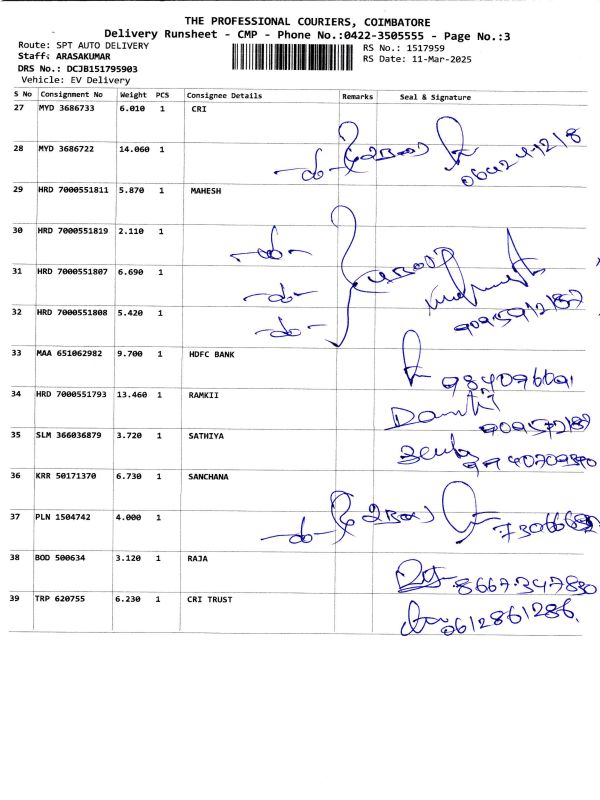 THE PROFESSIONAL COURIERS, COIMBATORE
Delivery Runsheet - CMP - Phone No.:0422-3505555 - Page No.:3
Route: SPT AUTO DELIVERY
RS No.: 1517959
Staff: ARASAKUMAR
RS Date: 11-Mar-2025
DRS No.: DCJB151795903
Vehicle: EV Delivery
S No Consignment No Weight PCS Consignee Details Remarks Seal & Signature
27 MYD 3686733 6.010 1 CRI
28 MYD 3686722 14.060 1 -do-
29 HRD 7000551811 5.870 1 MAHESH
30 HRD 7000551819 2.110 1 -do-
31 HRD 7000551807 6.690 1 -do-
32 HRD 7000551808 5.420 1 -do- 9095912187
33 MAA 651062982 9.700 1 HDFC BANK
34 HRD 7000551793 13.460 1 RAMKII
35 SLM 366036879 3.720 1 SATHIYA
36 KRR 50171370 6.730 1 SANCHANA
37 PLN 1504742 4.000 1 -do-
38 BOD 500634 3.120 1 RAJA 8667347830
39 TRP 620755 6.230 1 CRI TRUST 0612861286